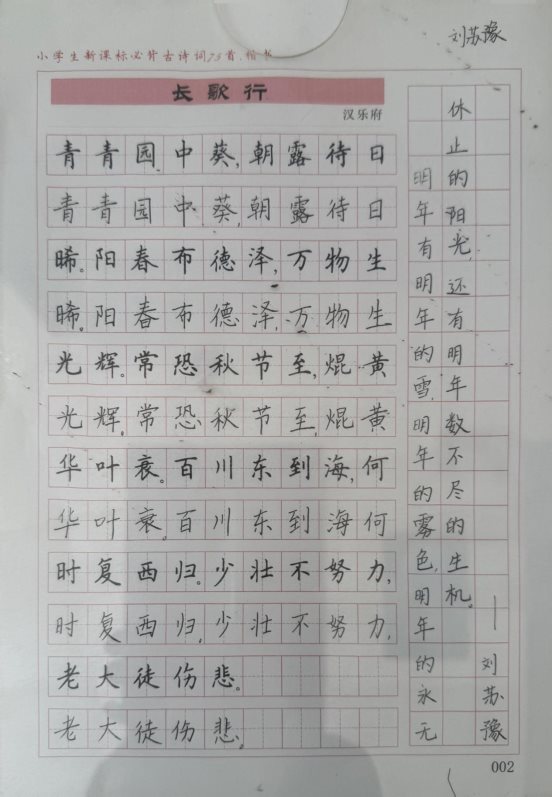 刘苏豫
小学生新课标必背古诗词75首·楷书
长歌行
汉乐府
青青园中葵,朝露待日
青青园中葵,朝露待日
晞。阳春布德泽,万物生
晞。阳春布德泽,万物生
光辉。常恐秋节至,焜黄
光辉,常恐秋节至,焜黄
华叶衰。百川东到海,何
华叶衰。百川东到海何
时复西归。少壮不努力,
时复西归,少壮不努力,
老大徒伤悲。
老大徒伤悲。
明年有明年的雪,明年的雾色,明年的永无
休止的阳光,还有明年数不尽的生机。
——刘苏豫
002